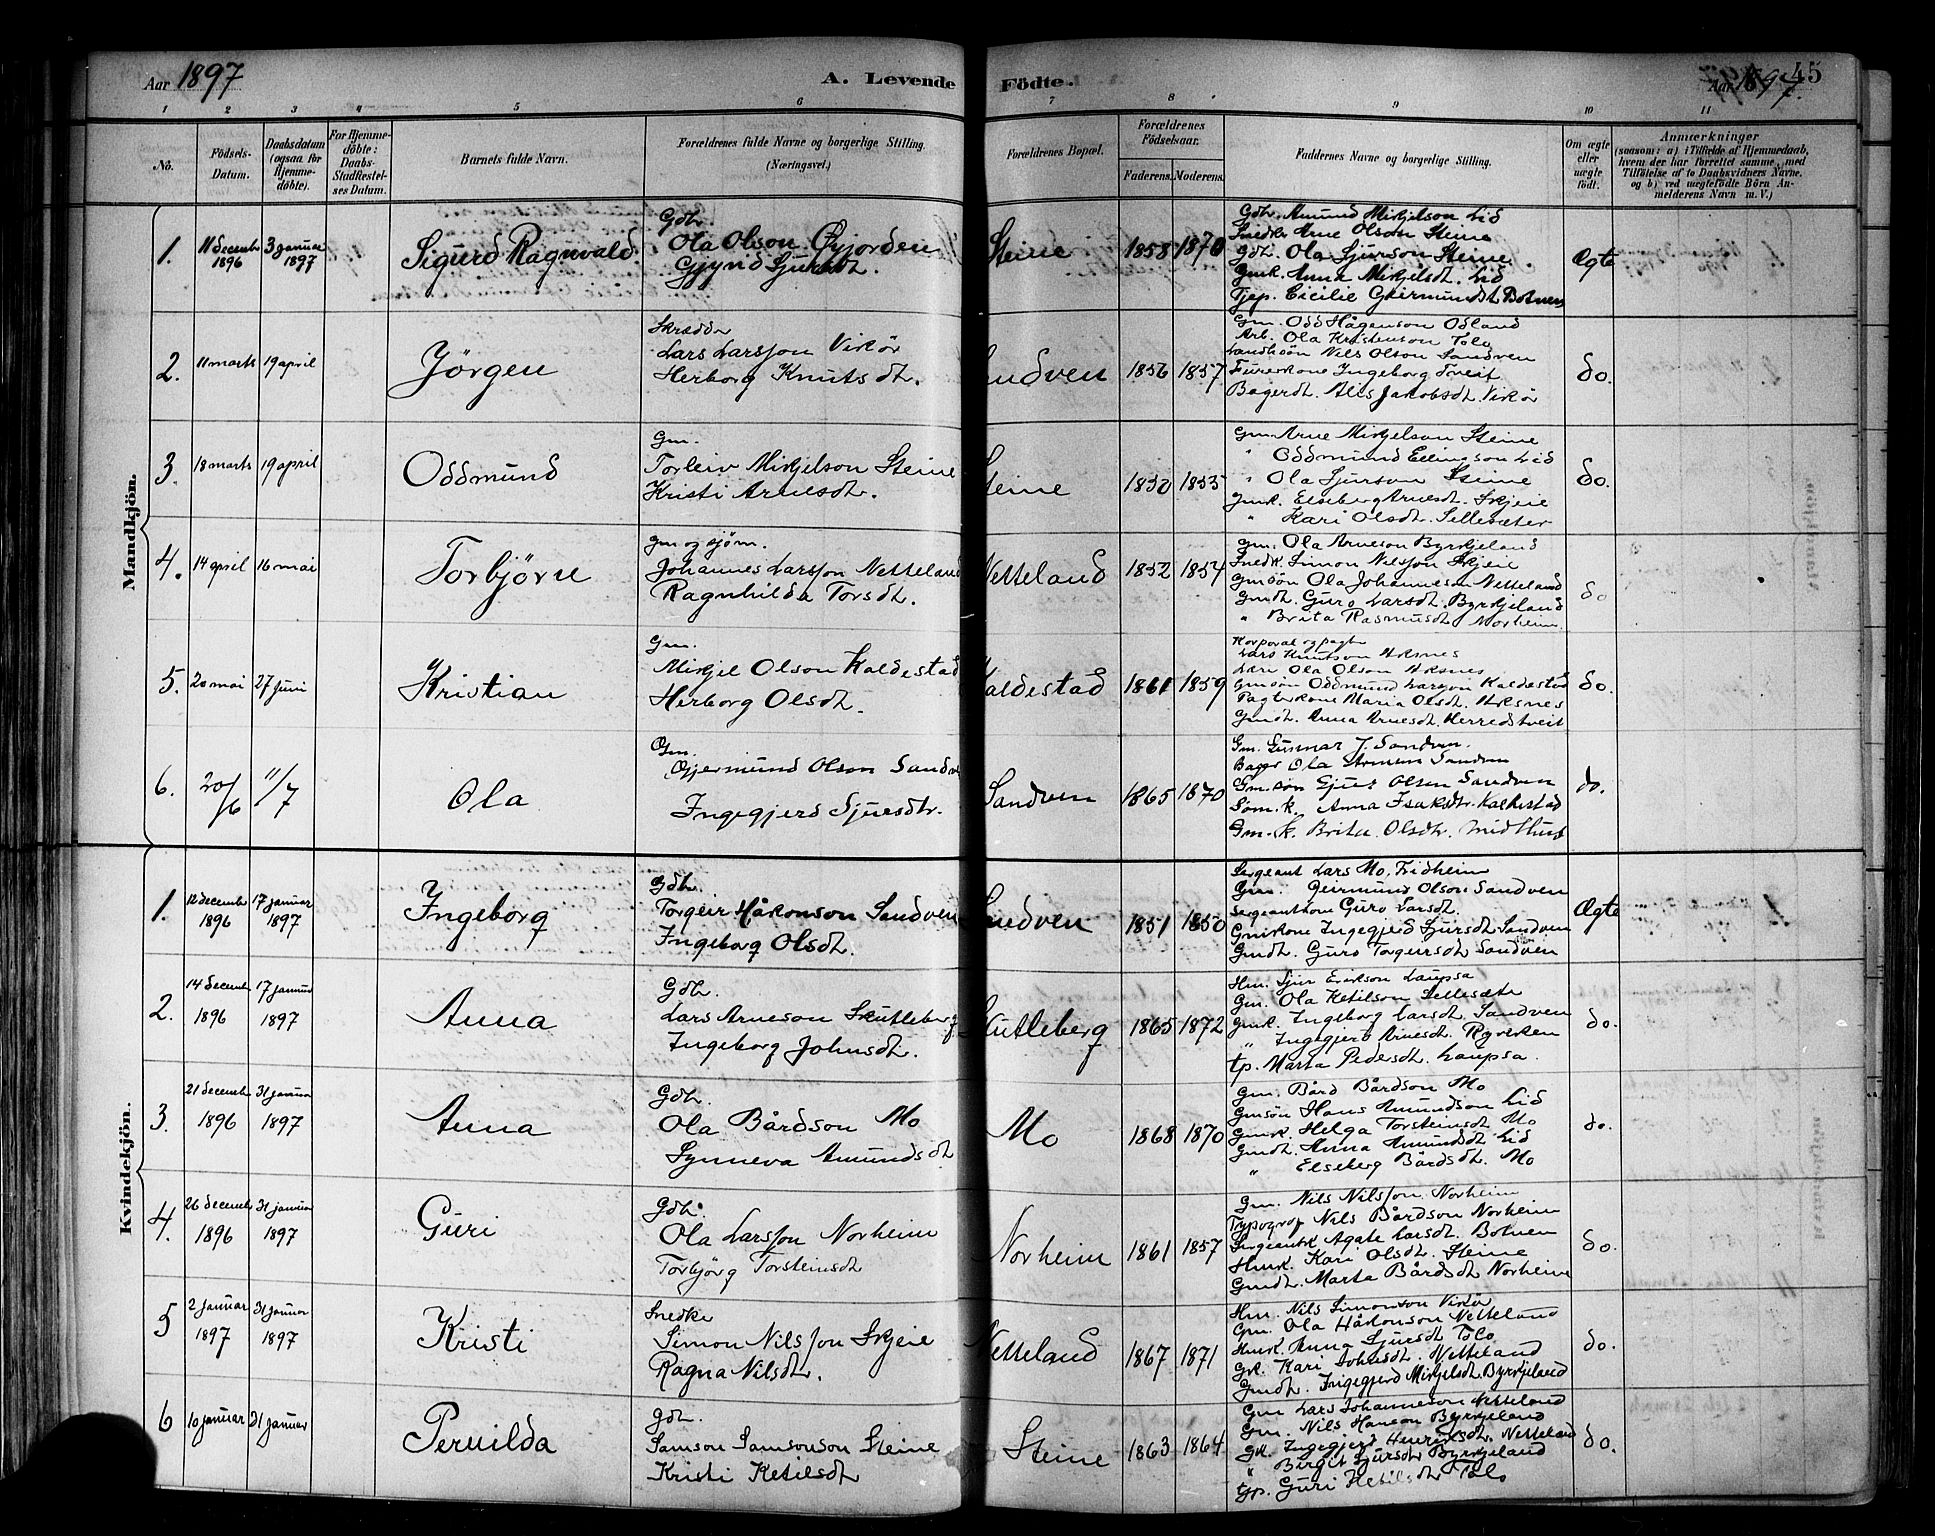 Aar 1897
A. Levende Födte.
Aar 1897.
45
1 2 3 4 5 6 7 8 9 10 11
No.
Födsels-Datum.
Daabsdatum (ogsaa for Hjemmedöbte).
For Hjemmedöbte: Daabs-Stadfæstelses Datum.
Barnets fulde Navn.
Forældrenes fulde Navne og borgerlige Stilling. (Næringsvei.)
Forældrenes Bopæl.
Forældrenes Födselsaar.
Faderens. Moderens.
Faddernes Navne og borgerlige Stilling.
Om ægte eller uægte födt.
Anmærkninger
(saasom: a) i Tilfælde af Hjemmedaab, hvem der har forrettet samme, med Tilföielse af to Daabsvidners Navne, og b) ved uægtefödte Börn Anmelderens Navn m. V.)
Mandkjön.
1. 11 decembr 1896 3 januar 1897 Sigurd Ragnvald.
Gdbr.
Ola Olson Øyjorden
Gjyrid Sjursdt.
Steine 1858 1870
Gdbr. Amund Mikjelson Lid
Snedkr Arne Olson Steine
Gdb. Ola Sjurson Steine
Gmk. Anna Mikjelsdt. Lid
Tjep. Cicilie Geirmundsdt Botnen
Ægte
2. 11 marts 19 april Jörgen
Skrædder
Lars Larsson Vikör
Herborg Knutsdt.
Sandven 1856 1857
Gm. Odd Hågenson Odland
Arb. Ola Kristenson Tolo
Landhsön Nils Olson Sandven
Furerkone Ingeborg Tveit
Bagerdt. Alis Jakobsdt. Vikör
do.
3. 18 marts 19 april Oddmund
Gm.
Torleiv Mikjelson Steine
Kristi Arnesdt.
Steine 1850 1855
Gm. Arne Mikjelson Steine
" Oddmund Ellingson Lid
" Ola Sjurson Steine
Gmk. Elseberg Arnesdt. Skjeie
" Kari Olsdt. Sellesæter
do.
4. 14 april 16 mai Torbjörn
Gm og sjöm.
Johannes Larsson Netteland
Ragnhilda Torsdt.
Netteland 1852 1854
Gm. Ola Arneson Byrkjeland
Snedk. Simon Nilsson Skjeie
Gmsön Ola Johanneson Netteland
Gmdt. Guro Larsdt. Byrkjeland
" Brita Rasmusdt Norheim
do
5. 20 mai 27 juni Kristian
Gm.
Mikjel Olson Kaldestad
Herborg Olsdt.
Kaldestad 1861 1859
Korporal og pagter
Lars Knutson Aksnes
Lær. Ola Olson Aksnes
Gmsön Oddmund Larsson Kaldestad
Pagterkone Maria Olsdt. Aksnes
Gmdt. Anna Arnesdt. Herredstveit
do.
6. 20/6 11/7 Ola
Gm.
Gjermund Olson Sandven
Ingegjerd Sjursdtr.
Sandven 1865 1870
Gm. Gunnar J. Sandven.
Bager Ola Sandven
Gm. sön Sjur Olsen Sandven
Söm. k. Anna Isaksdtr. Kaldestad
Gm. k. Brita Olsdtr. Midthus
do.
Kvindekjön.
1. 12 decembr 1896 17 januar 1897 Ingeborg
Gdbr.
Torgeir Håkonson Sandven
Ingeborg Olsdt.
Sandven 1851 1850
Sergeant Lars Mo, Fridheim
Gm. Geirmund Olson Sandven
Sergeantkone Guro Larsdt.
Gmkone Ingegjerd Sjursdt. Sandven
Gmdt. Guro Torgeirsdt Sandven
Ægte
2. 14 decembr 1896 17 januar 1897 Anna
Gdbr.
Lars Arneson Skutleberg
Ingeborg Johnsdt.
Skutleberg 1865 1872
Hm. Sjur Erikson Laupsa
Gm. Ola Ketilson Sellesæte
Gmk. Ingeborg Larsdt. Sandven
" Ingegjerd Arnesdt. Rykken
tp. Marta Pedersdt. Laupsa.
do.
3. 21 decembr 1896 31 januar 1897 Anna
Gdbr.
Ola Bårdson Mo
Synneva Amundsdt
Mo 1868 1870
Gm. Bård Bårdson Mo
Gmsön Hans Amundson Lid
Gmk. Helga Torsteinsdt Mo
Gmdt. Anna Amundsdt Lid
" Elseberg Bårdsdt. Mo
do.
4. 26 decembr 1896 31 januar 1897 Guri
Gdbr.
Ola Larsson Norheim
Torbjörg Torsteinsdt
Norheim 1861 1857
Gm. Nils Nilsson Norheim
Typograf Nils Bårdson Norheim
Sergeantk. Agate Larsdt. Botnen
Hmk. Kari Olsdt. Steine
Gmdt. Marta Bårdsdt Norheim
do.
5 2 januar 1897 31 januar 1897 Kristi
Snedker
Simon Nilsson Skjeie
Ragna Nilsdt.
Netteland 1867 1871
Hm. Nils Simonson Vikör
Gm. Ola Håkonson Netteland
Hmk. Anna Sjursdt Tolo
Gk. Kari Johnsdt. Netteland
Gmdt. Ingegjerd Mikjelsdt Byrkjeland
do.
6 10 januar 31 januar Pernilda
Gdbr.
Samson Samsonson Steine
Kristi Ketilsdt
Steine 1863 1864
Gm Lars Johanneson Netteland
Gm. Nils Hanson Byrkjeland
Gk. Ingegjerd Henriksdt. Netteland
" Birgit Sjursdt Byrkjeland
tjp. Guri Ketilsdt Tolo
do.